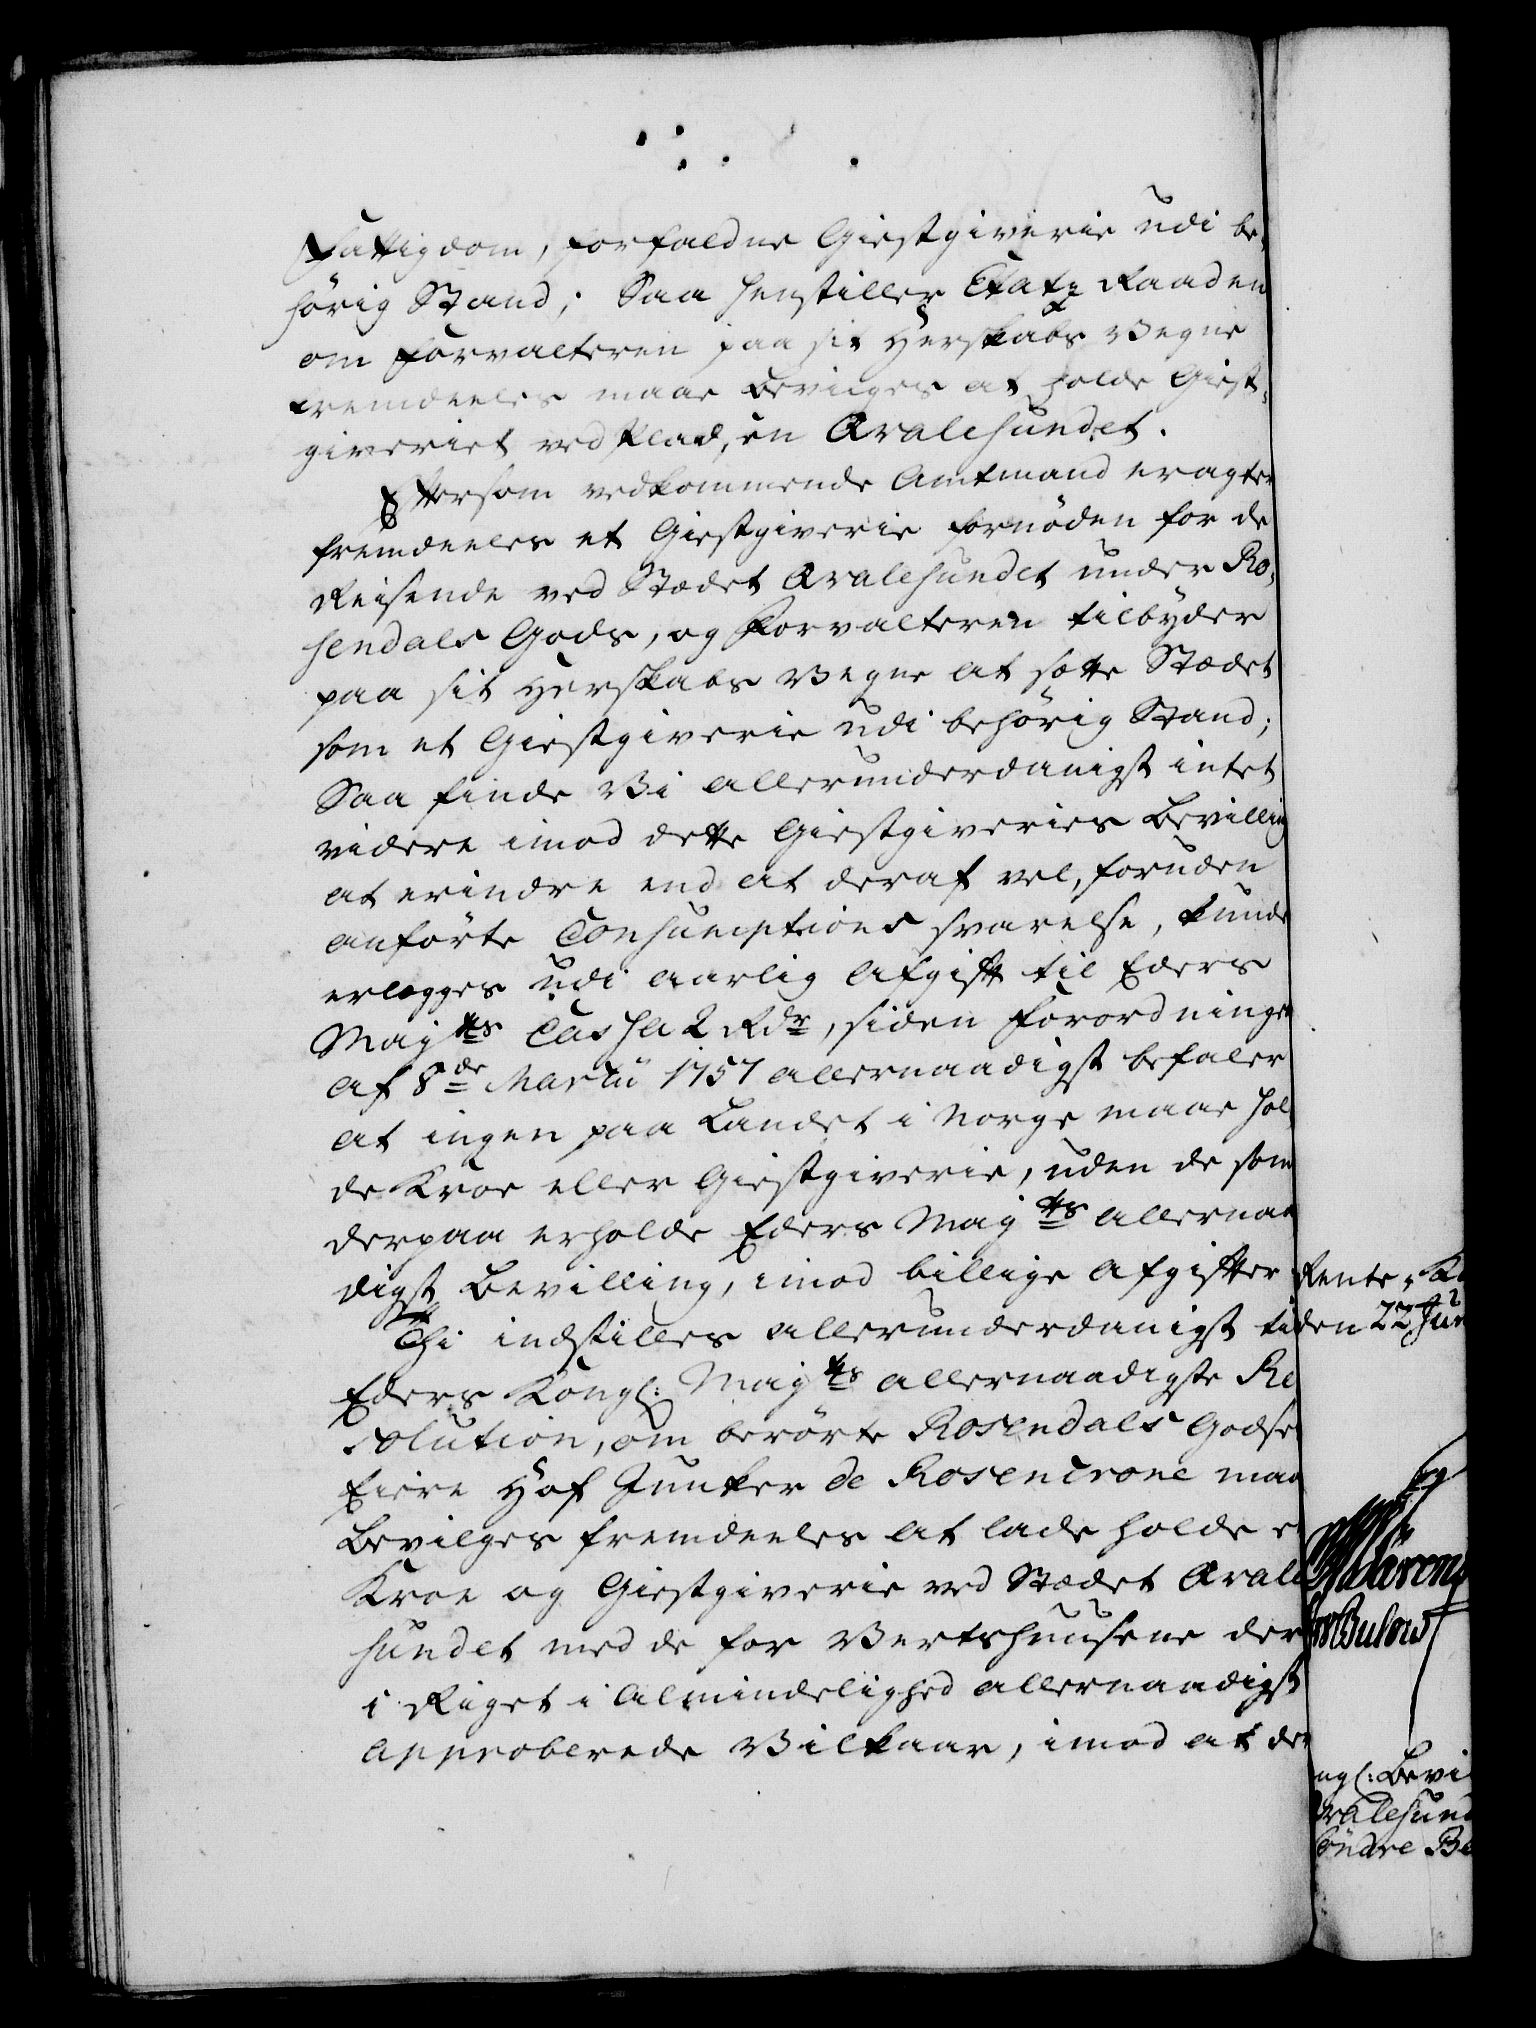 Fattigdom, forfaldne Giestgiverie udi be-
hörig Stand; Saa henstiller Etatz Raaden
om Forvalteren paa sit Herskabs Vegne
fremdeeles maae bevilges at holde Giest-
giveriet ved Pladsen Qvalesundet.
Eftersom vedkommende Amtmand eragter
fremdeeles et Giestgiverie fornöden for de
Reisende ved Stædet Qvalesundet under Ro-
sendals Gods, og Forvalteren tilbyder
paa sit Herskabs Vegne at sætte Stædet
som et Giestgiverie udi behörig Stand;
Saa finde Vi allerunderdanigst intet
videre imod dette Giestgiveries Bevilling
at erindre end at deraf vel, foruden
anförte Consumptions svarelse, kunde
erlægges udi aarlig Afgift til Eders
Maj:ts Cassa 2 Rdr, siden Forordningen
af 8de Martii 1757 allernaadigst befaler
at ingen paa Landet i Norge maae hol-
de Kroe eller Giestgiverie, uden de som
derpaa erholde Eders Maj:ts allernaa
digst Bevilling, imod billige Afgifter
Thi indstilles allerunderdanigst til
Eders Kongl: Maj:ts allernaadigste Re
solution, om berörte Rosendals Godses
Eiere Hof Junker de Rosencrone maa
bevilges fremdeeles at lade holde e
Kroe og Giestgiverie ved Stædet Qvale
sundet med de for Vertshuusene der
i Riget i Almindelighed allernaadigst
approberede Vilkaar, imod at der
Rente-Ka
den 22 Jun
Bulow
ngl: Bevi
valesund
Söndre Be